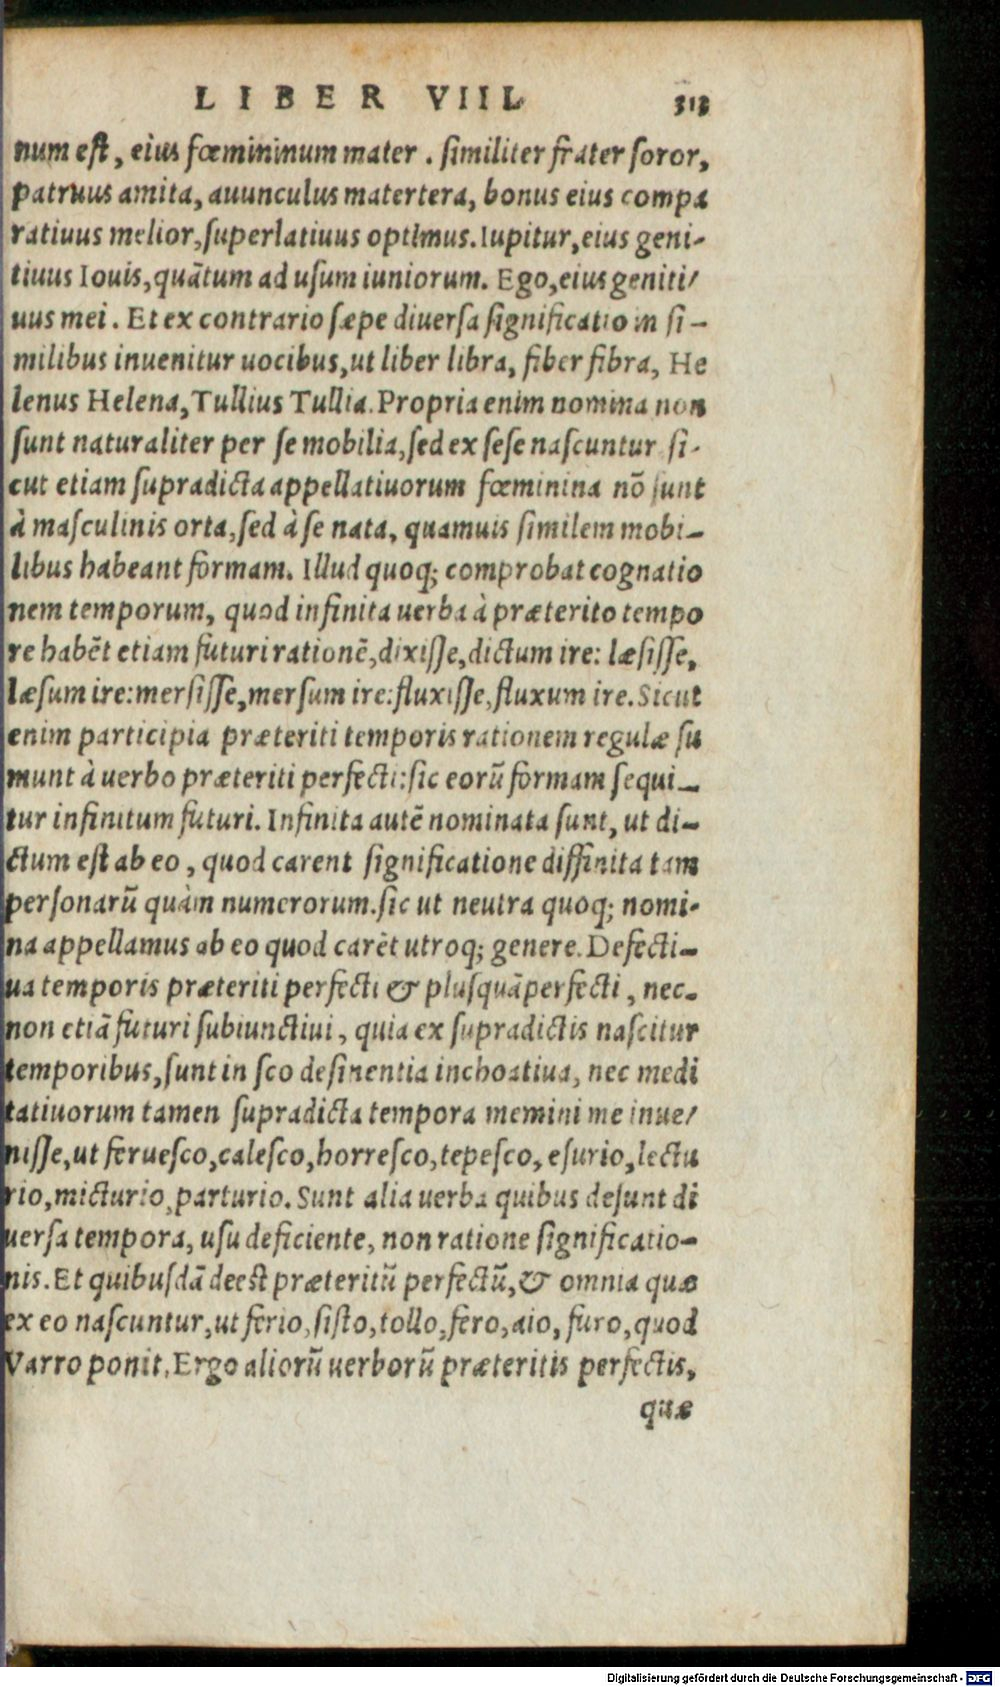 LIBER VIII. 313
num est, eius fœmininum mater. similiter frater soror,
patruus amita, auunculus matertera, bonus eius compa
ratiuus melior, superlatiuus optimus. Iupitur, eius geni-
tiuus Iouis, quãtum ad usum iuniorum. Ego, eius geniti/
uus mei. Et ex contrario sæpe diuersa significatio in si-
milibus inuenitur uocibus, ut liber libra, fiber fibra, He
lenus Helena, Tullius Tullia. Propria enim nomina non
sunt naturaliter per se mobilia, sed ex sese nascuntur si-
cut etiam supradicta appellatiuorum fœminina nõ sunt
à masculinis orta, sed à se nata, quamuis similem mobi-
libus habeant formam. Illud quoq; comprobat cognatio
nem temporum, quod infinita uerba à præterito tempo
re habẽt etiam futuri rationẽ, dixisse, dictum ire: læsisse,
læsum ire: mersisse, mersum ire: fluxisse, fluxum ire. Sicut
enim participia præteriti temporis rationem regulæ su
munt à uerbo præteriti perfecti: sic eorũ formam sequi-
tur infinitum futuri. Infinita autẽ nominata sunt, ut di-
ctum est ab eo, quod carent significatione diffinita tam
personarũ quàm numerorum. sic ut neutra quoq; nomi-
na appellamus ab eo quod carẽt utroq; genere. Defecti-
ua temporis præteriti perfecti & plusquãperfecti, nec-
non etiã futuri subiunctiui, quia ex supradictis nascitur
temporibus, sunt in sco desinentia inchoatiua, nec medi
tatiuorum tamen supradicta tempora memini me inue/
nisse, ut feruesco, calesco, horresco, tepesco, esurio, lectu
rio, micturio, parturio. Sunt alia uerba quibus desunt di
uersa tempora, usu deficiente, non ratione significatio-
nis. Et quibusdã deest præteritũ perfectũ, & omnia quæ
ex eo nascuntur, ut ferio, sisto, tollo, fero, aio, furo, quod
Varro ponit. Ergo aliorũ uerborũ præteritis perfectis,
quæ
Digitalisierung gefördert durch die Deutsche Forschungsgemeinschaft - DFG